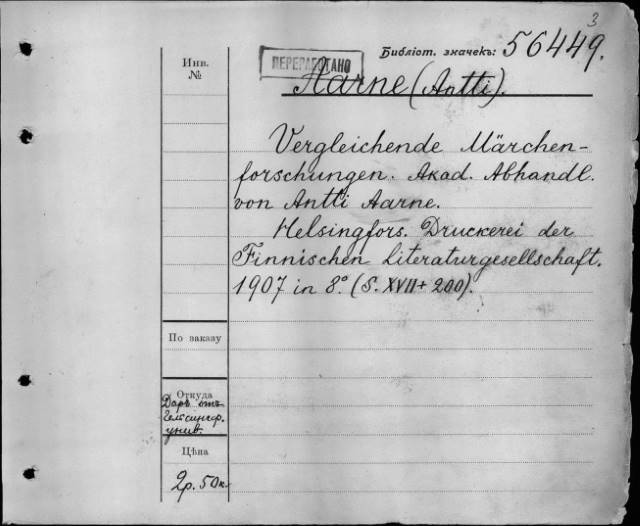 3
Библіот. значекъ: 56449.
ПЕРЕРАБОТАНО
Инв.
№
Aarne (Antti).
Vergleichende Märchen-
forschungen. Akad. Abhandl.
von Antti Aarne.
Helsingfors. Druckerei der
Finnischen Literaturgesellschaft.
1907 in 8º. (S. XVII + 200).
По заказу
Откуда
Даръ отъ
Гельсингф.
унив.
Цѣна
2р. 50к.